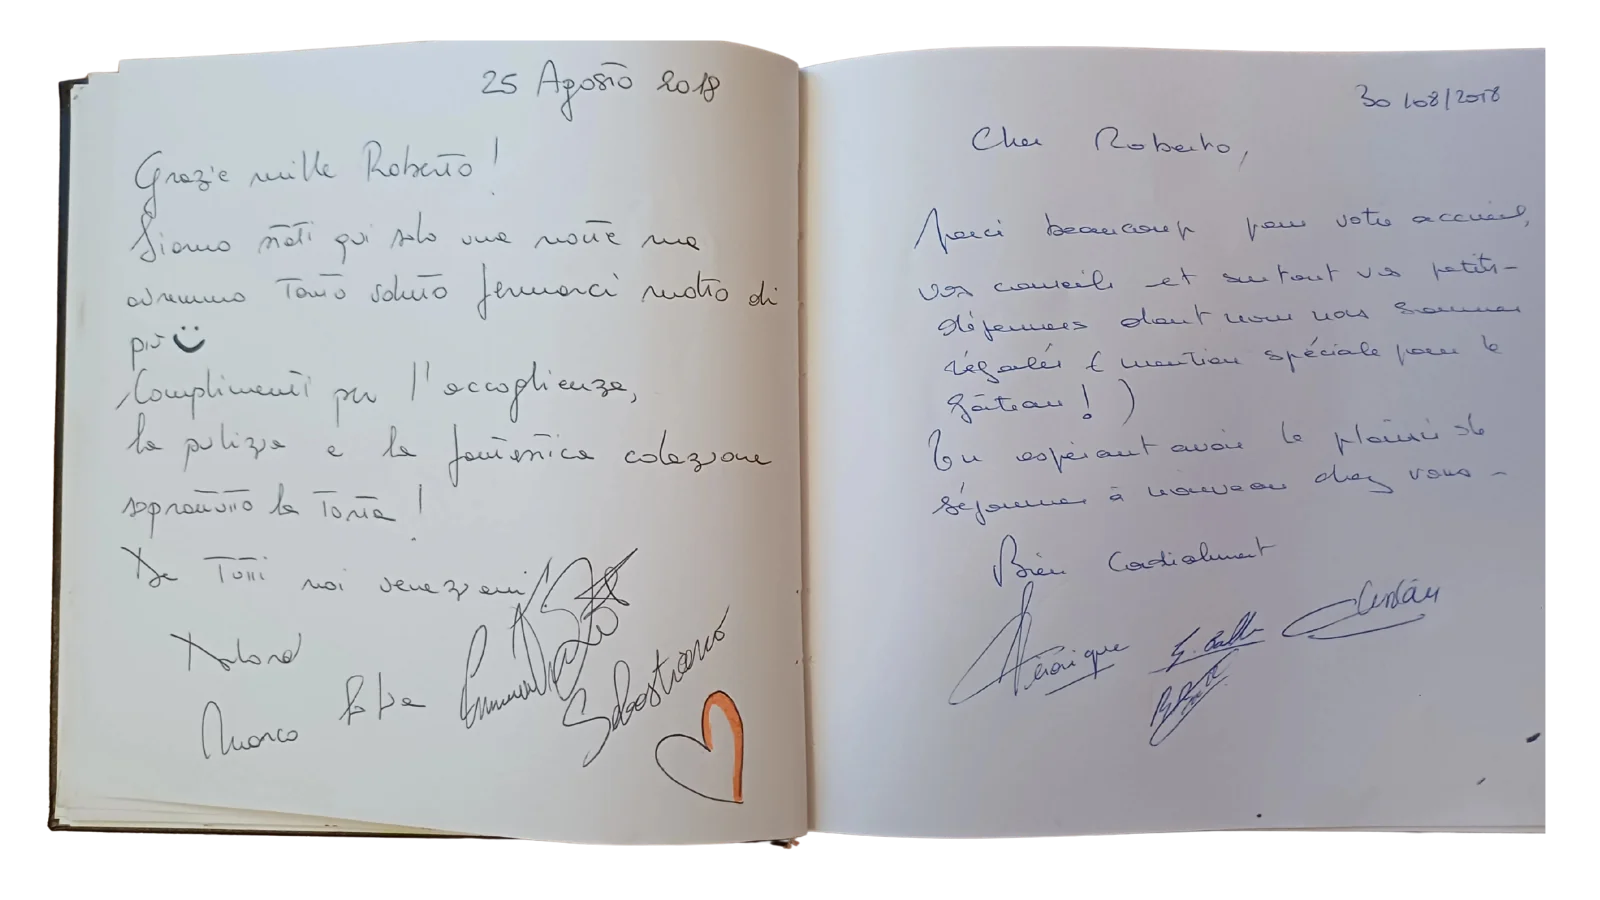 25 Agosto 2018
Grazie mille Roberto!
Siamo stati qui solo una notte ma
avremmo tanto voluto fermarci molto di
più
Complimenti per l'accoglienza,
la pulizia e la fantastica colazione
soprattutto la torta!
Da tutti noi veneziani
Marco
Sebastiano
30/08/2018
Cher Roberto,
Merci beaucoup pour votre accueil,
vos conseils et surtout vos petits-
déjeuners dont nous nous sommes
régalés (mention spéciale pour le
gâteau!)
En espérant avoir le plaisir de
séjourner à nouveau chez vous -
Bien Cordialement
Véronique